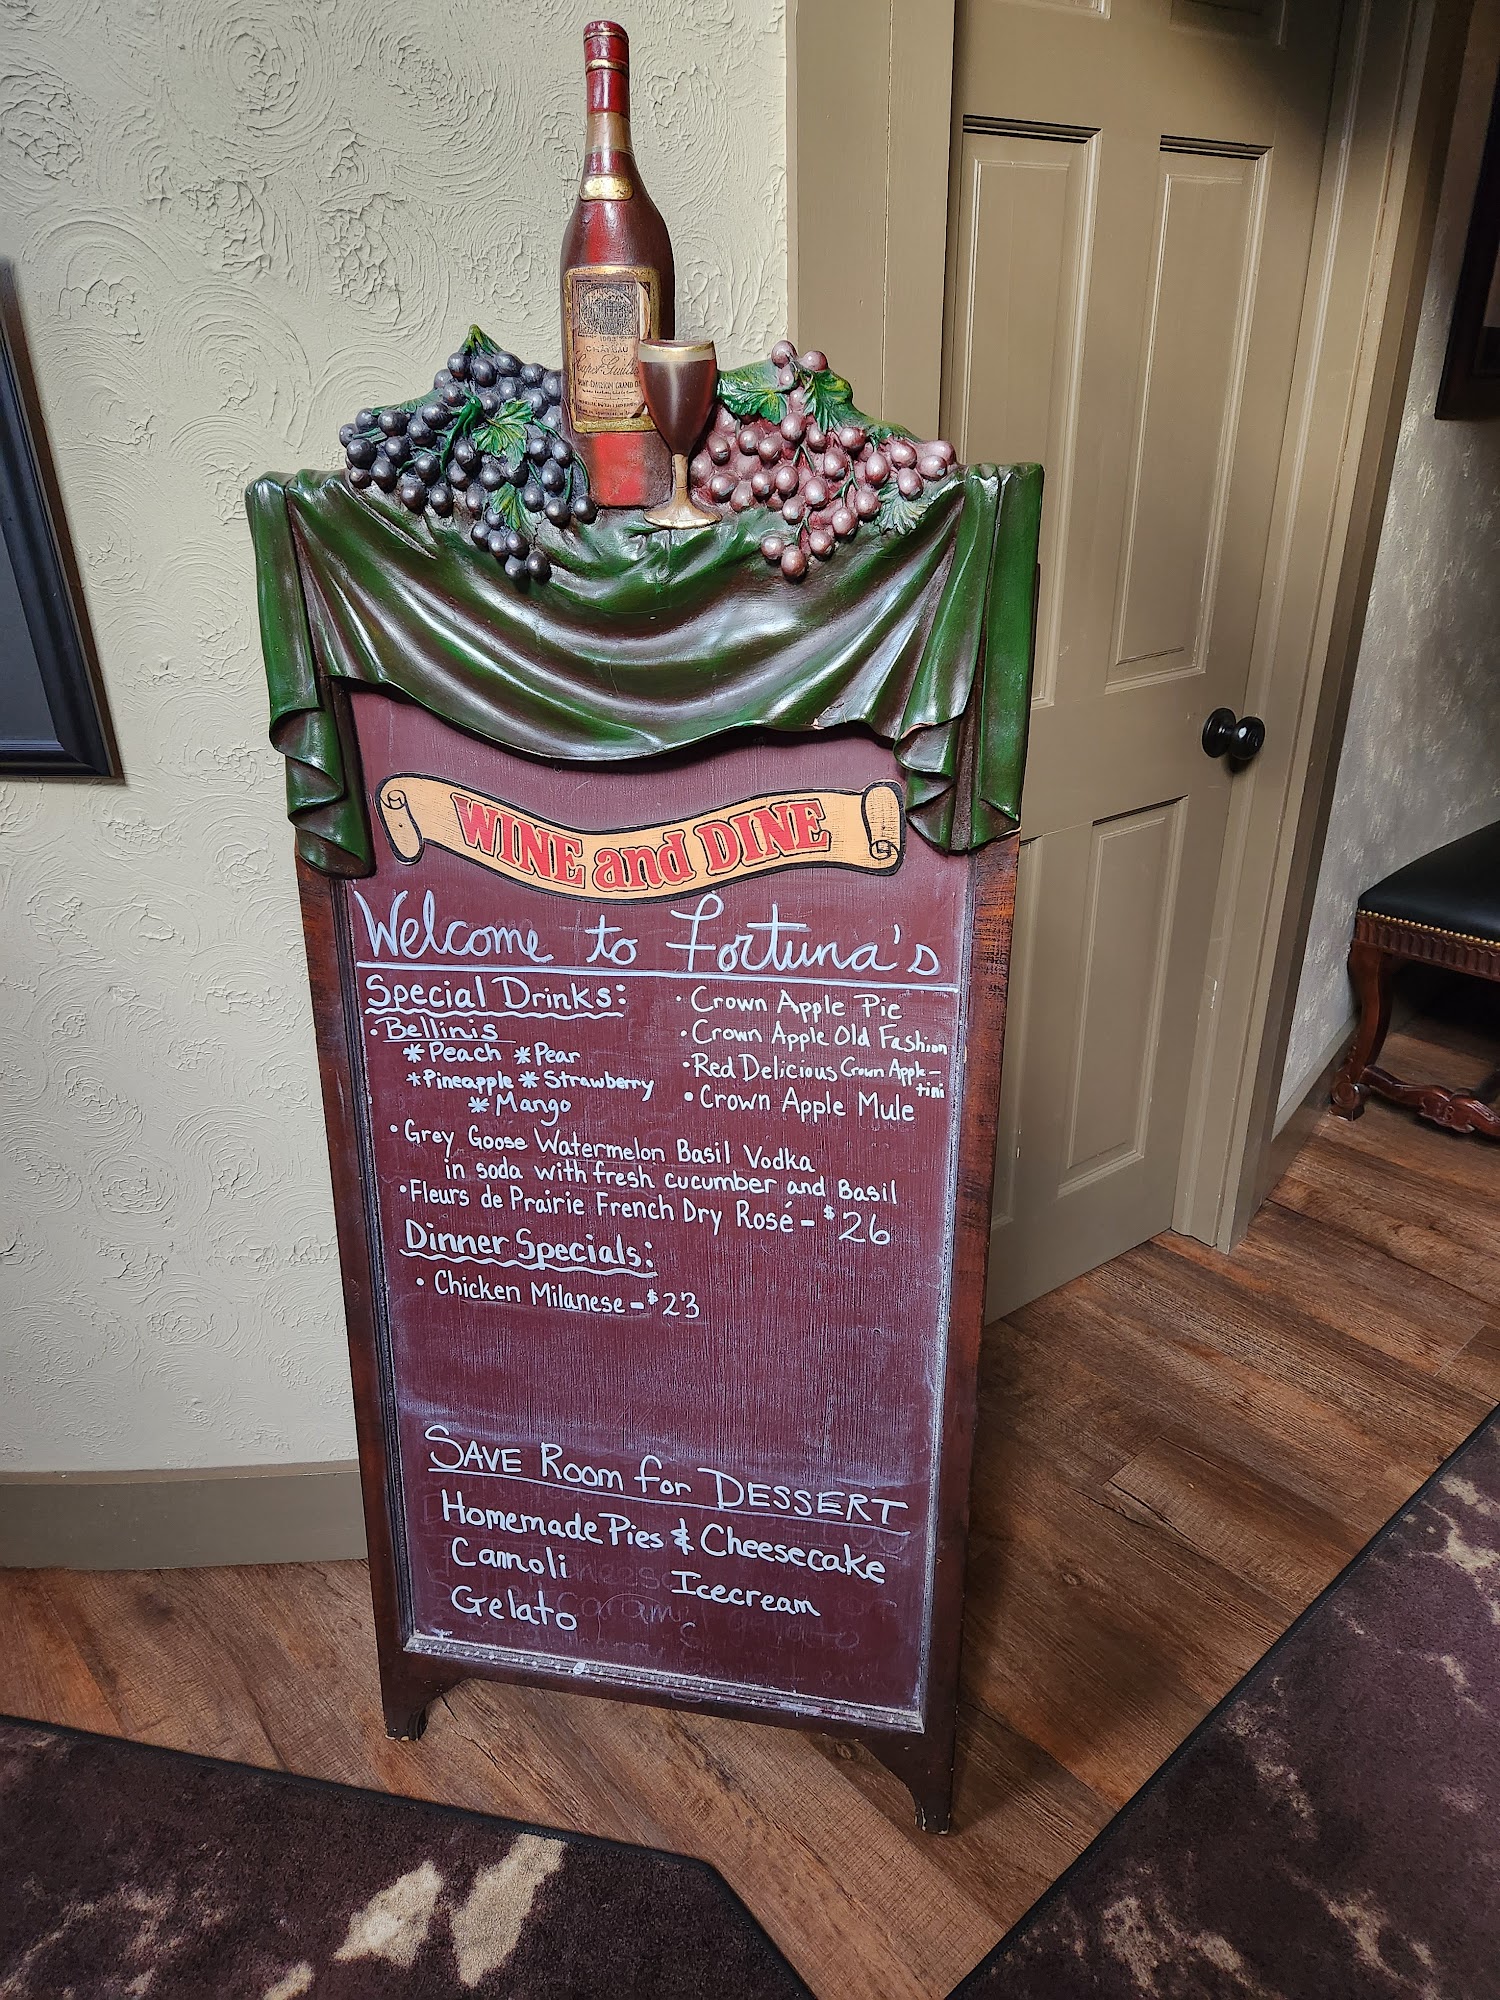 CHATEAU
WINE and DINE
Welcome to Fortuna's
Special Drinks:
• Bellinis
* Peach * Pear
* Pineapple * Strawberry
* Mango
• Crown Apple Pie
• Crown Apple Old Fashion
• Red Delicious Crown Apple-
tini
• Crown Apple Mule
• Grey Goose Watermelon Basil Vodka
in soda with fresh cucumber and Basil
• Fleurs de Prairie French Dry Rosé - $26
Dinner Specials:
• Chicken Milanese - $23
SAVE Room for DESSERT
Homemade Pies & Cheesecake
Cannoli
Icecream
Gelato